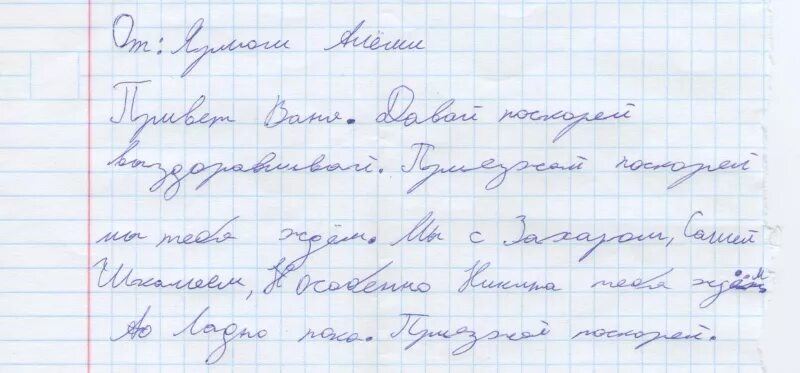 От: Ярмоги Алёши
Привет Ваня. Давай поскорей
выздоравливай. Приезжай поскорей
мы тебя ждём. Мы с Захаром, Сашей
особенно Никита тебя ждём
Ладно пока. Приезжай поскорей.